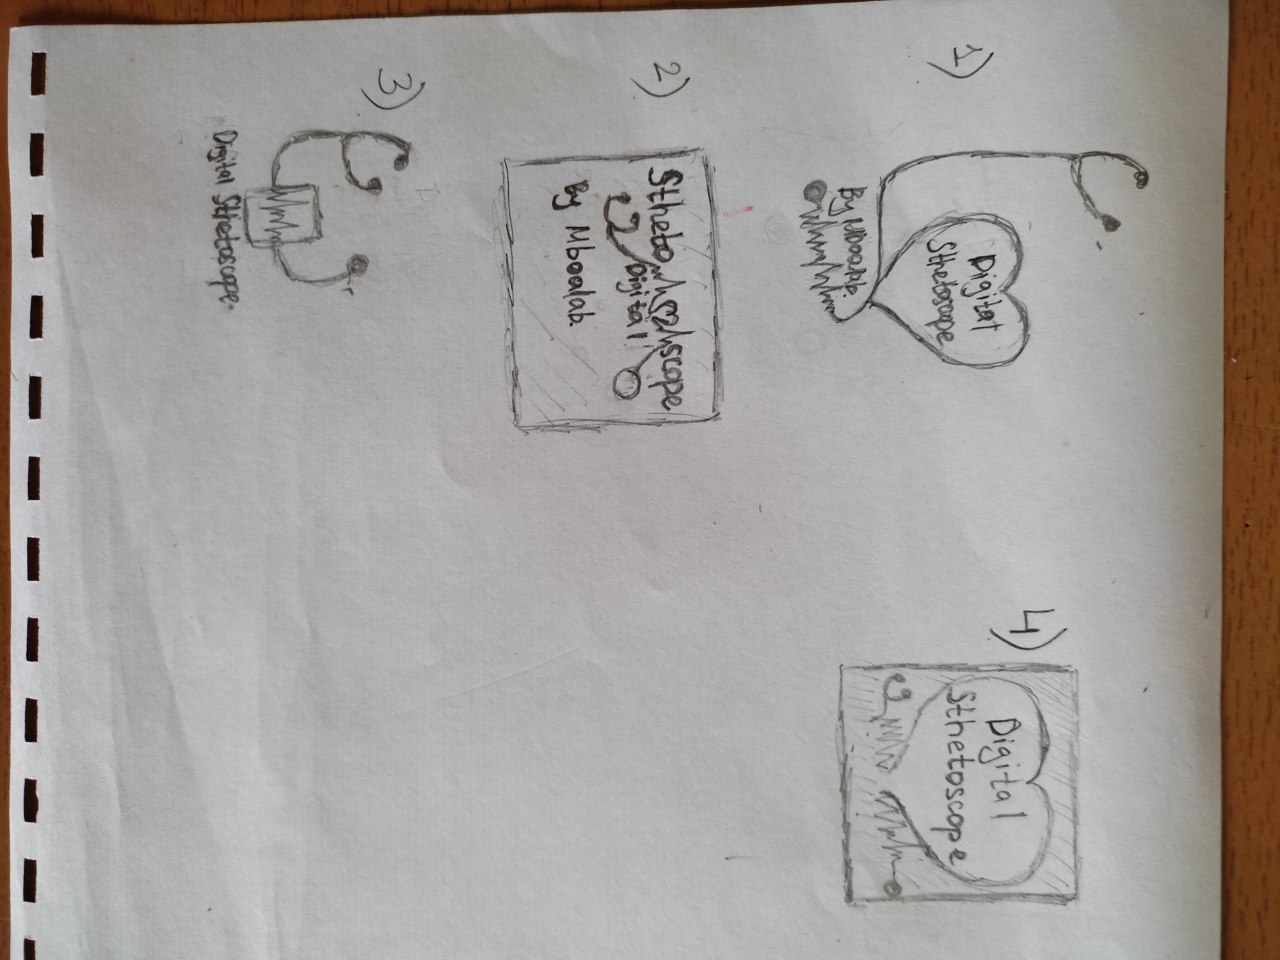 1)
Digital
Sthetoscope
By Mboalab.
2)
Stheto scope
Digital
By Mboalab.
3)
Digital Sthetoscope.
4)
Digital
Sthetoscope